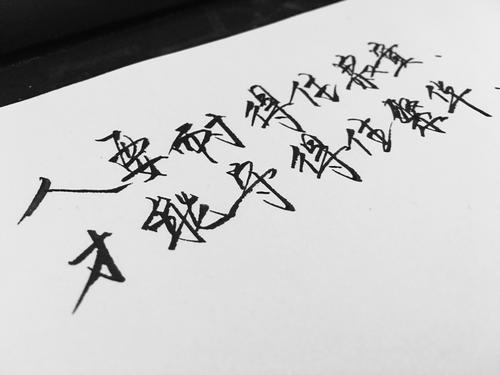 人要耐得住寂寞.
才能守得住繁华